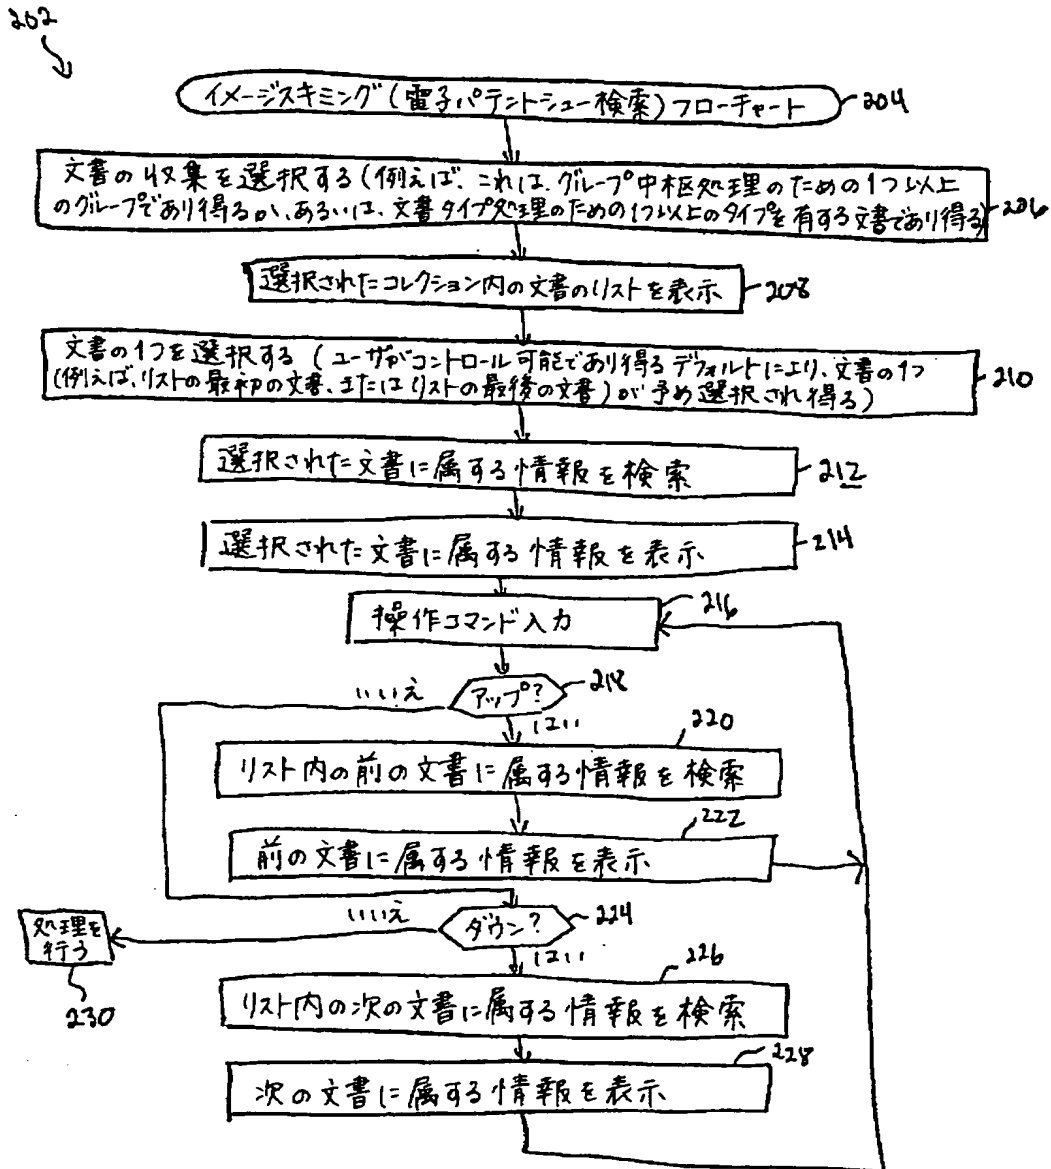 202
イメージスキミング(電子パテントシュー検索)フローチャート
204
文書の収集を選択する(例えば、これは、グループ中枢処理のための1つ以上
のグループであり得るか、あるいは、文書タイプ処理のための1つ以上のタイプを有する文書であり得る)
206
選択されたコレクション内の文書のリストを表示
208
文書の1つを選択する(ユーザがコントロール可能であり得るデフォルトにより、文書の1つ
(例えば、リストの最初の文書、またはリストの最後の文書)が予め選択され得る)
210
選択された文書に属する情報を検索
212
選択された文書に属する情報を表示
214
操作コマンド入力
216
アップ?
218
いいえ
はい
220
リスト内の前の文書に属する情報を検索
222
前の文書に属する情報を表示
ダウン?
224
いいえ
はい
処理を
行う
230
226
リスト内の次の文書に属する情報を検索
228
次の文書に属する情報を表示